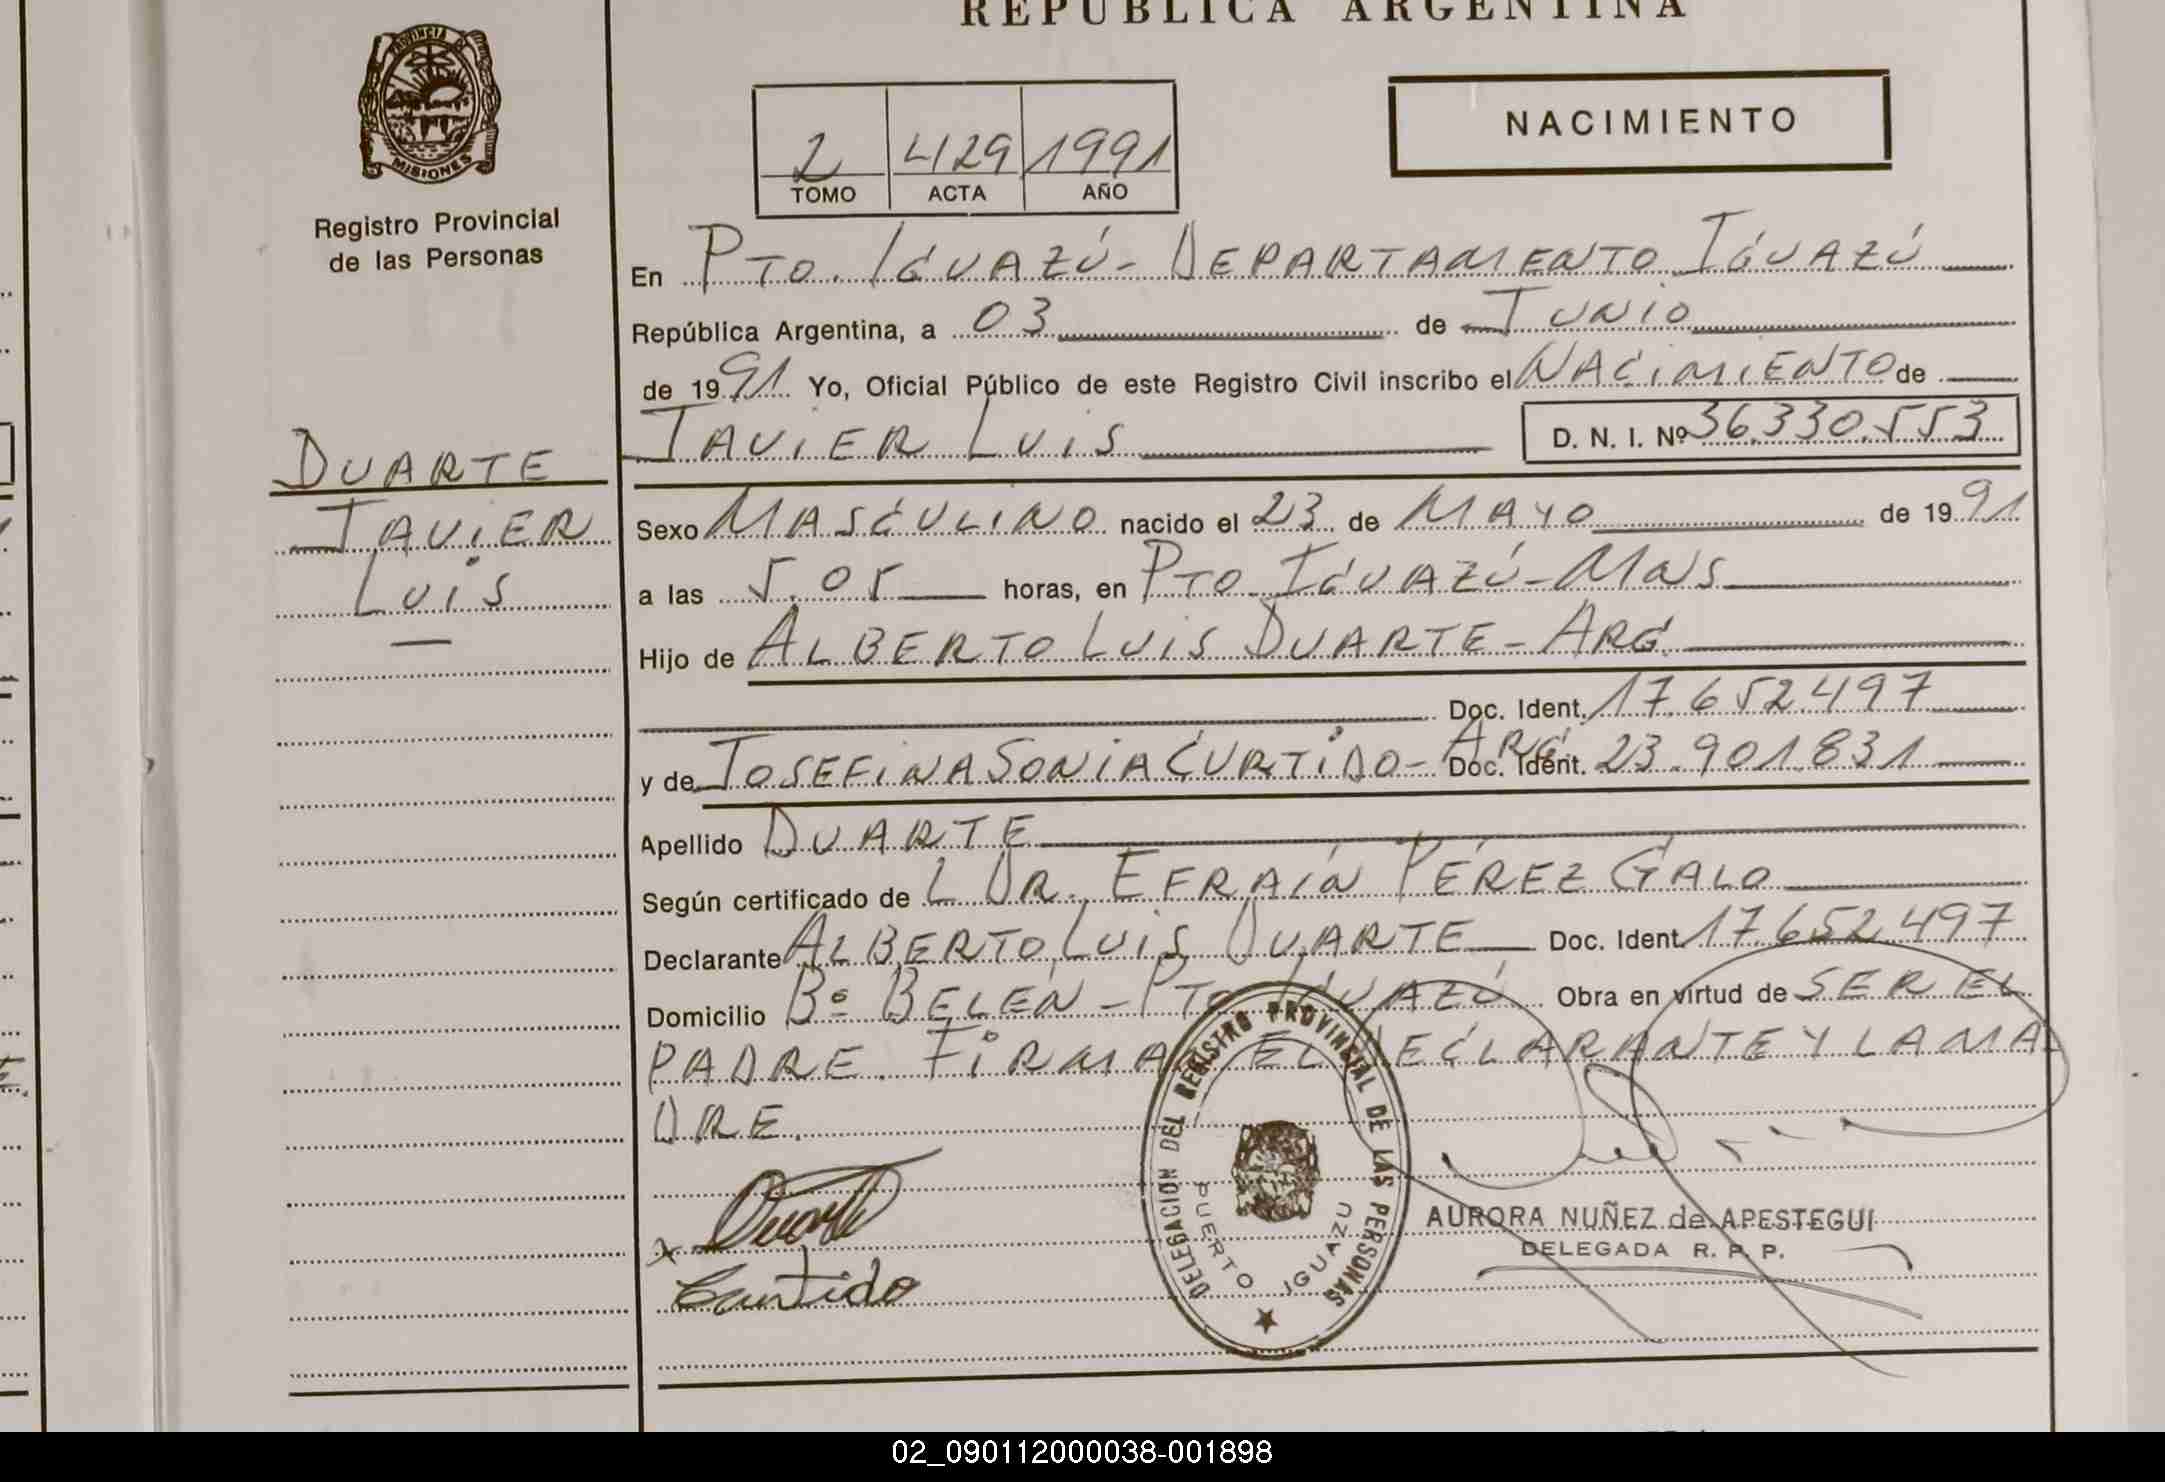 REPUBLICA ARGENTINA
PROVINCIA DE
MISIONES
Registro Provincial
de las Personas
NACIMIENTO
2 429 1991
TOMO ACTA AÑO
En PTO. IGUAZÚ - DEPARTAMENTO IGUAZÚ
República Argentina, a 03 de JUNIO
de 1991 Yo, Oficial Público de este Registro Civil inscribo el NACIMIENTO de
JAVIER LUIS D. N. I. Nº 36.330.553
DUARTE
JAVIER
LUIS
Sexo MASCULINO nacido el 23 de MAYO de 1991
a las 5.05 horas, en PTO IGUAZÚ - MNS
Hijo de ALBERTO LUIS DUARTE - ARG.
Doc. Ident. 17.652.497
y de JOSEFINA SONIA CURTIDO - ARG. Doc. Ident. 23.901.831
Apellido DUARTE
Según certificado de L DR. EFRAÍN PÉREZ GALO
Declarante ALBERTO LUIS DUARTE Doc. Ident. 17652497
Domicilio Bº BELÉN - PTO IGUAZÚ Obra en virtud de SER EL
PADRE. FIRMA EL DECLARANTE Y LA MA
DRE.
Duarte
Curtido
DELEGACION DEL REGISTRO PROVINCIAL DE LAS PERSONAS
PUERTO IGUAZU
AURORA NUÑEZ de APESTEGUI
DELEGADA R. P. P.
02_090112000038-001898